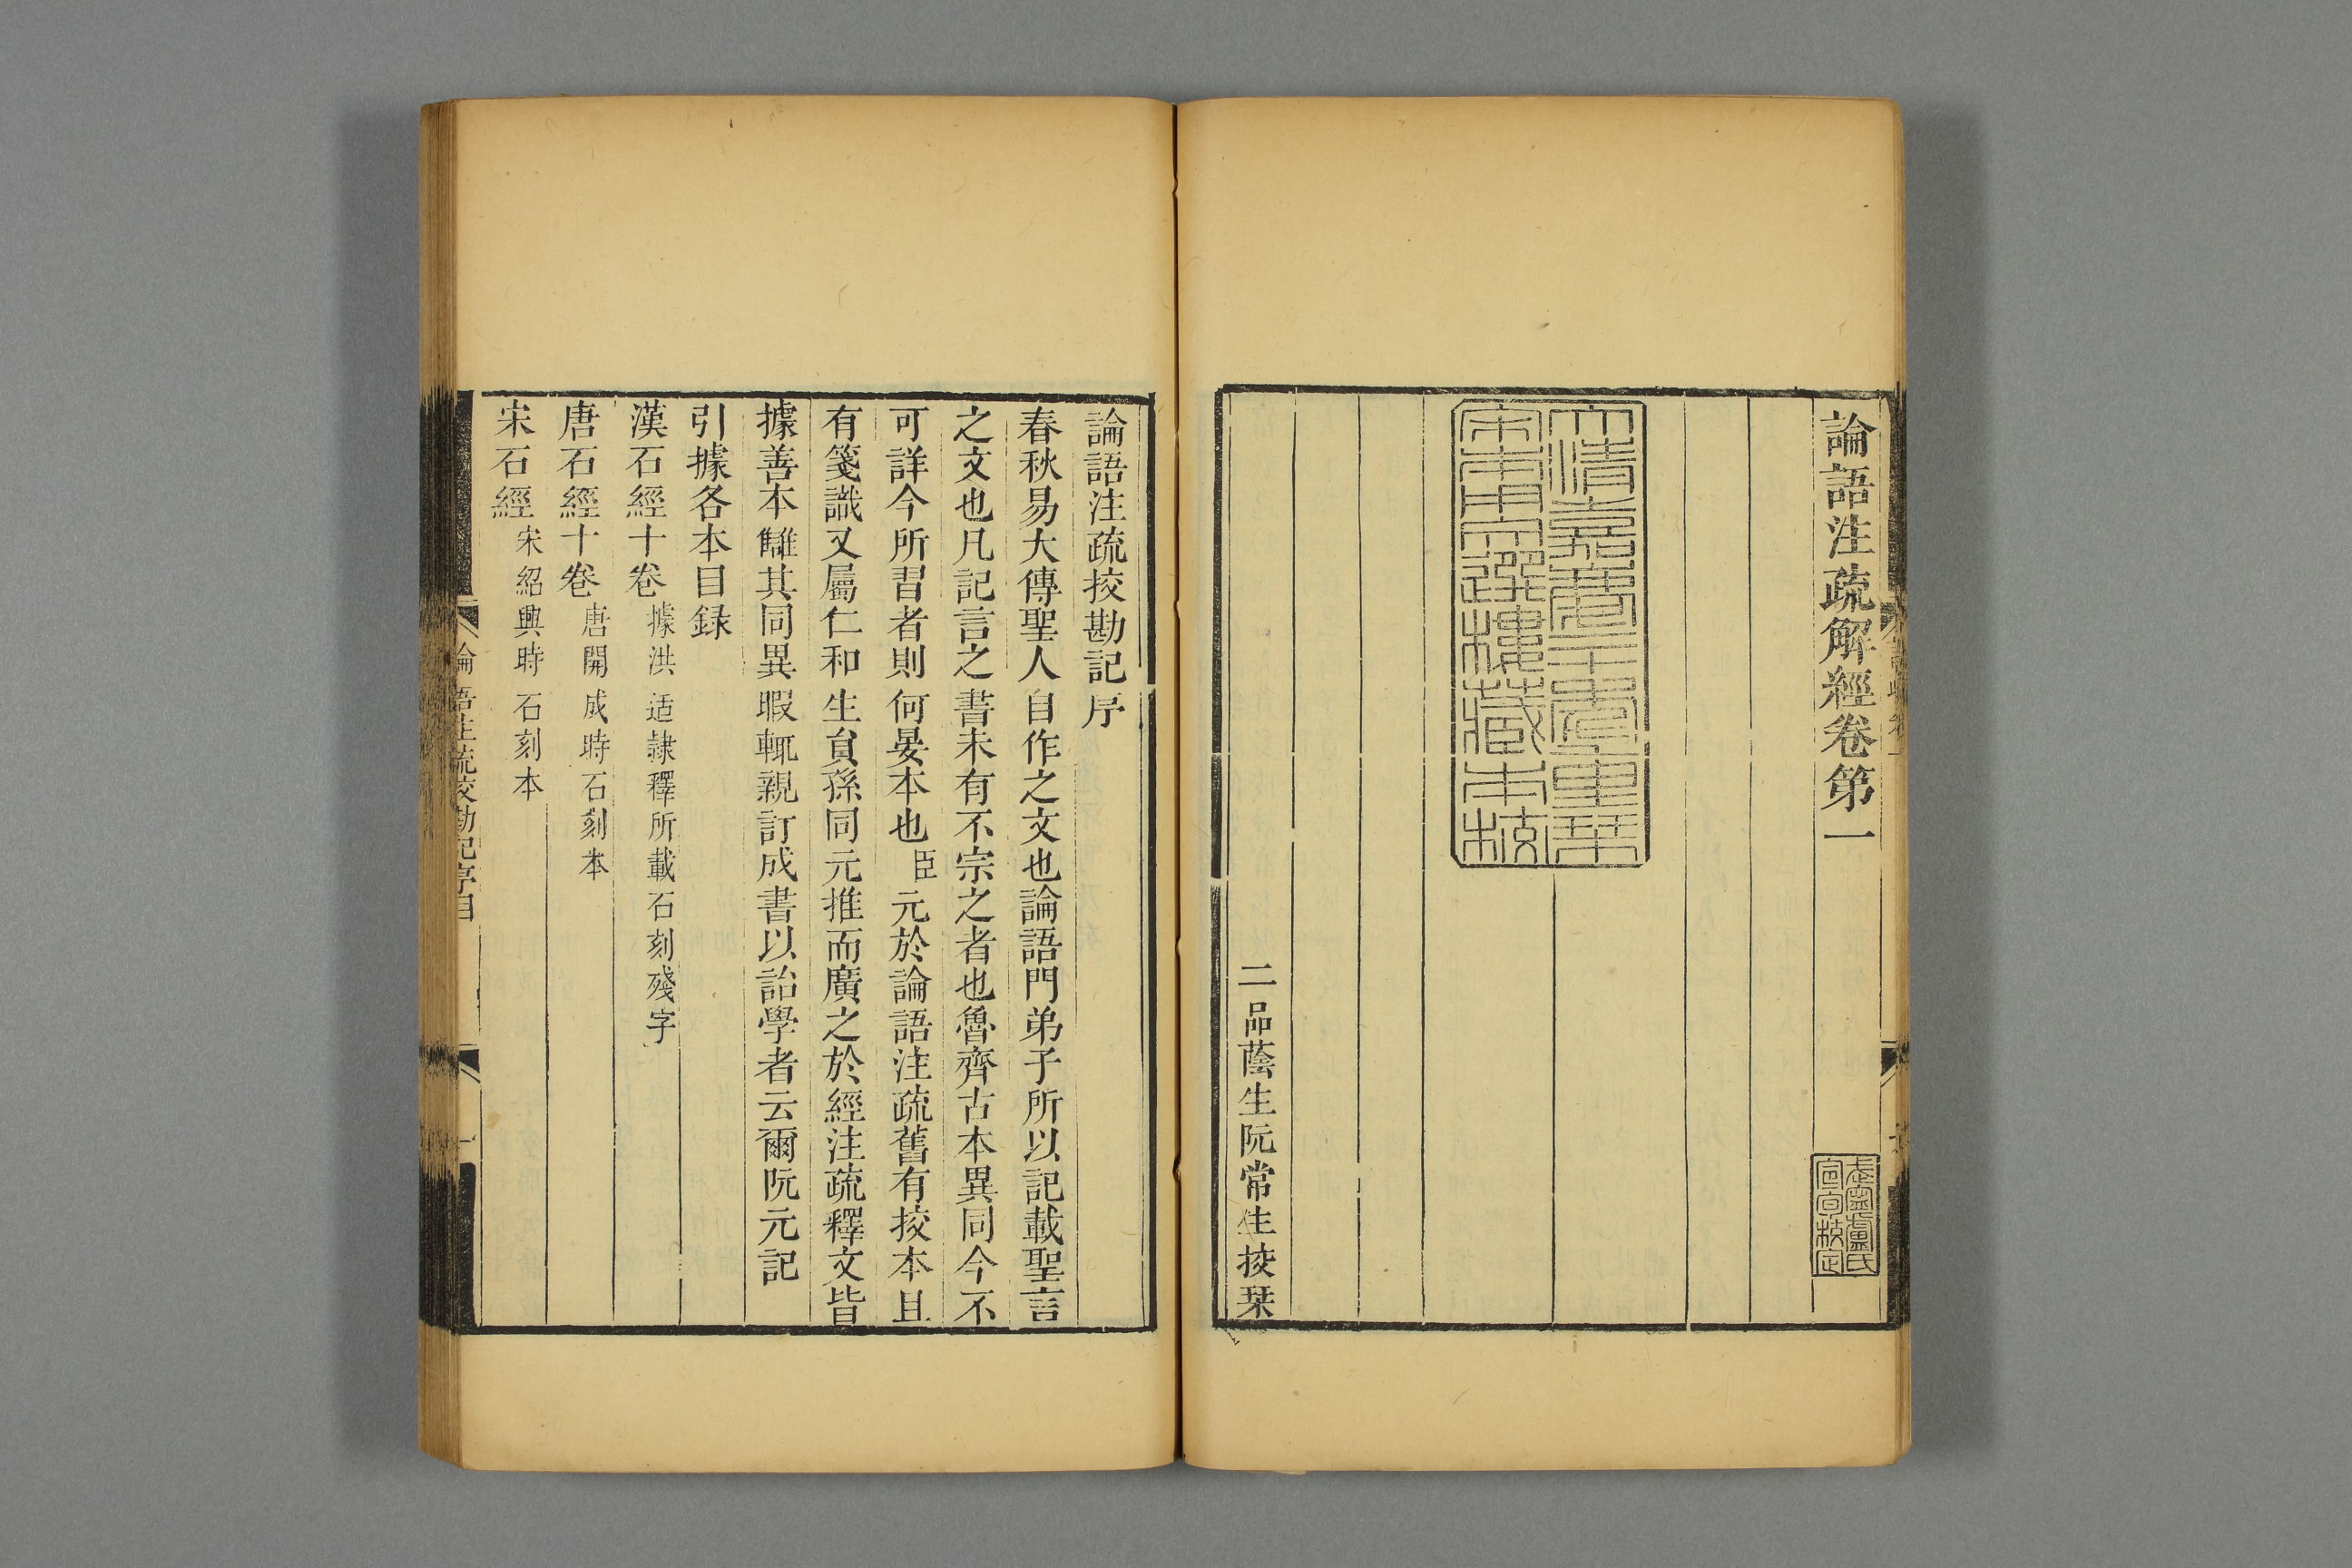 論語注疏解經卷第一
武寧盧氏
宣旬校定
大清嘉慶二十年重栞
宋本用文選樓藏本校
二品蔭生阮常生挍栞
論語注疏挍勘記序
春秋易大傳聖人自作之文也論語門弟子所以記載聖言
之文也凡記言之書未有不宗之者也魯齊古本異同今不
可詳今所習者則何晏本也臣元於論語注疏舊有挍本且
有箋識又屬仁和生員孫同元推而廣之於經注疏釋文皆
據善本讎其同異暇輒親訂成書以詒學者云爾阮元記
引據各本目録
漢石經十卷據洪适隷釋所載石刻殘字
唐石經十卷唐開成時石刻本
宋石經宋紹興時石刻本
論語注疏挍勘記序目